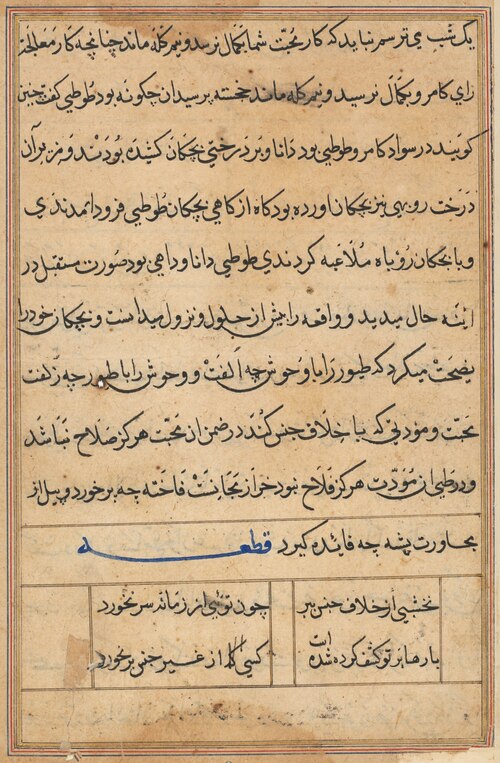 یک شب می ترسم نباید که کار محبّت شما بکمال نرسد و نیم کله ماند چنانچه کار معالجت
رای کامرو بکمال نرسید و نیم کله ماند خجسته پرسید ان چگونه بود طوطی گفت چنین
گویند در سواد کامرو طوطی بود دانا و بر درختی بچکان کشیده بودند و زیر آن
درخت روبهی نیز بچکان اورده بود کاه از کاهی بچکان طوطی فرود امدندی
و با بچکان روباه ملاعبه کردندی طوطی دانا و داهی بود صورت مستقبل در
اینه حال میدید و واقعه را پیش از حلول و نزول میدانست و بچکان خود را
نصیحت میکرد که طیور را با وحوش چه الفت و وحوش را با طیور چه زلفت
محبّت و مودتی که با خلاف جنس کنند در ضمن ان محبت هرگز صلاح نباشد
و در طی ان مودّت هرگز فلاح نبود خر از مجانست فاخته چه برخورد و پیل از
مجاورت پشه چه فایده گیرد قطعه
نخشبی از خلاف جنس ببر چون توئی از زمانه سر نخورد
بارها بر تو کشف کرده شده است کسی کا از غیر جنس بر نخورد